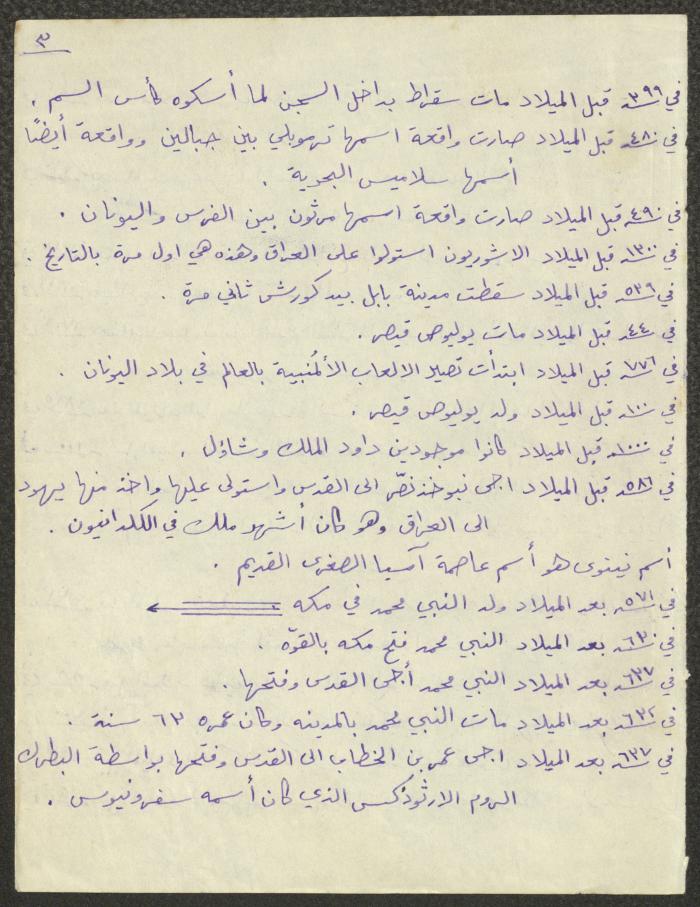 ٣
في ٣٩٩ سنة قبل الميلاد مات سقراط بداخل السجن لما أسكوه كأس السم .
في ٤٨٠ سنة قبل الميلاد صارت واقعة اسمها ترموبلي بين جبالين وواقعة أيضًا
أسمها سلاميس البحرية .
في ٤٩٠ سنة قبل الميلاد صارت واقعة اسمها مرثون بين الفرس واليونان .
في ١٣٠٠ سنة قبل الميلاد الاشوريون استولوا على العراق وهذه هي اول مرة بالتاريخ .
في ٥٣٩ سنة قبل الميلاد سقطت مدينة بابل بيد كورش ثاني مرة .
في ٤٤ سنة قبل الميلاد مات يوليوص قيصر .
في ٧٧٦ سنة قبل الميلاد ابتدأت تصير الالعاب الألمنبية بالعالم في بلاد اليونان .
في ١٠٠ سنة قبل الميلاد ولد يوليوص قيصر .
في ١٠٠٠ سنة قبل الميلاد كانوا موجودين داود الملك وشاؤل .
في ٥٨٦ سنة قبل الميلاد اجى نبوخذنصّر الى القدس واستولى عليها واخذ منها يهود
الى العراق وهو كان أشهر ملك في الكلدانيون .
أسم نينوى هو أسم عاصمة آسيا الصغرى القديم .
في ٥٧١ سنة بعد الميلاد ولد النبي محمد في مكه .
في ٦٣٠ سنة بعد الميلاد النبي محمد فتح مكه بالقوّه .
في ٦٣٧ سنة بعد الميلاد النبي محمد أجى القدس وفتحها
في ٦٣٢ سنة بعد الميلاد مات النبي محمد بالمدينه وكان عمره ٦٣ سنة .
في ٦٣٧ سنة بعد الميلاد اجى عمر بن الخطاب الى القدس وفتحها بواسطة البطرك
الروم الارثوذكس الذي كان أسمه سفرونيوس .